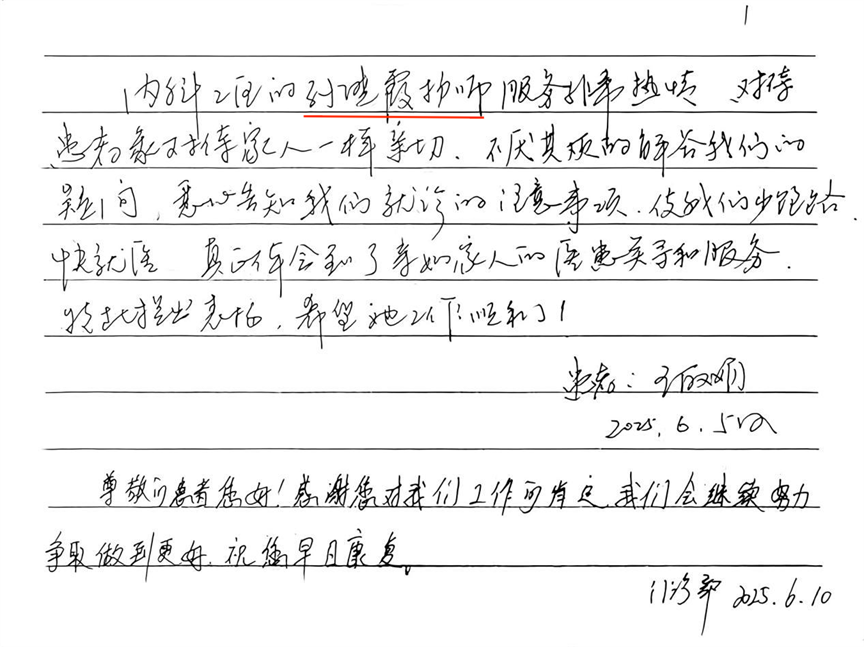 1
内科2区的刘晓霞护师服务非常热情 对待
患者象对待家人一样亲切、不厌其烦的解答我们的
疑问，悉心告知我们就诊的注意事项、使我们少跑路、
快就医 真正体会到了亲如家人的医患关系和服务、
特此提出表扬，希望她工作顺利！
患者：王
2025.6.5日
尊敬的患者您好！感谢您对我们工作的肯定，我们会继续努力
争取做到更好，祝您早日康复。
门诊部 2025.6.10